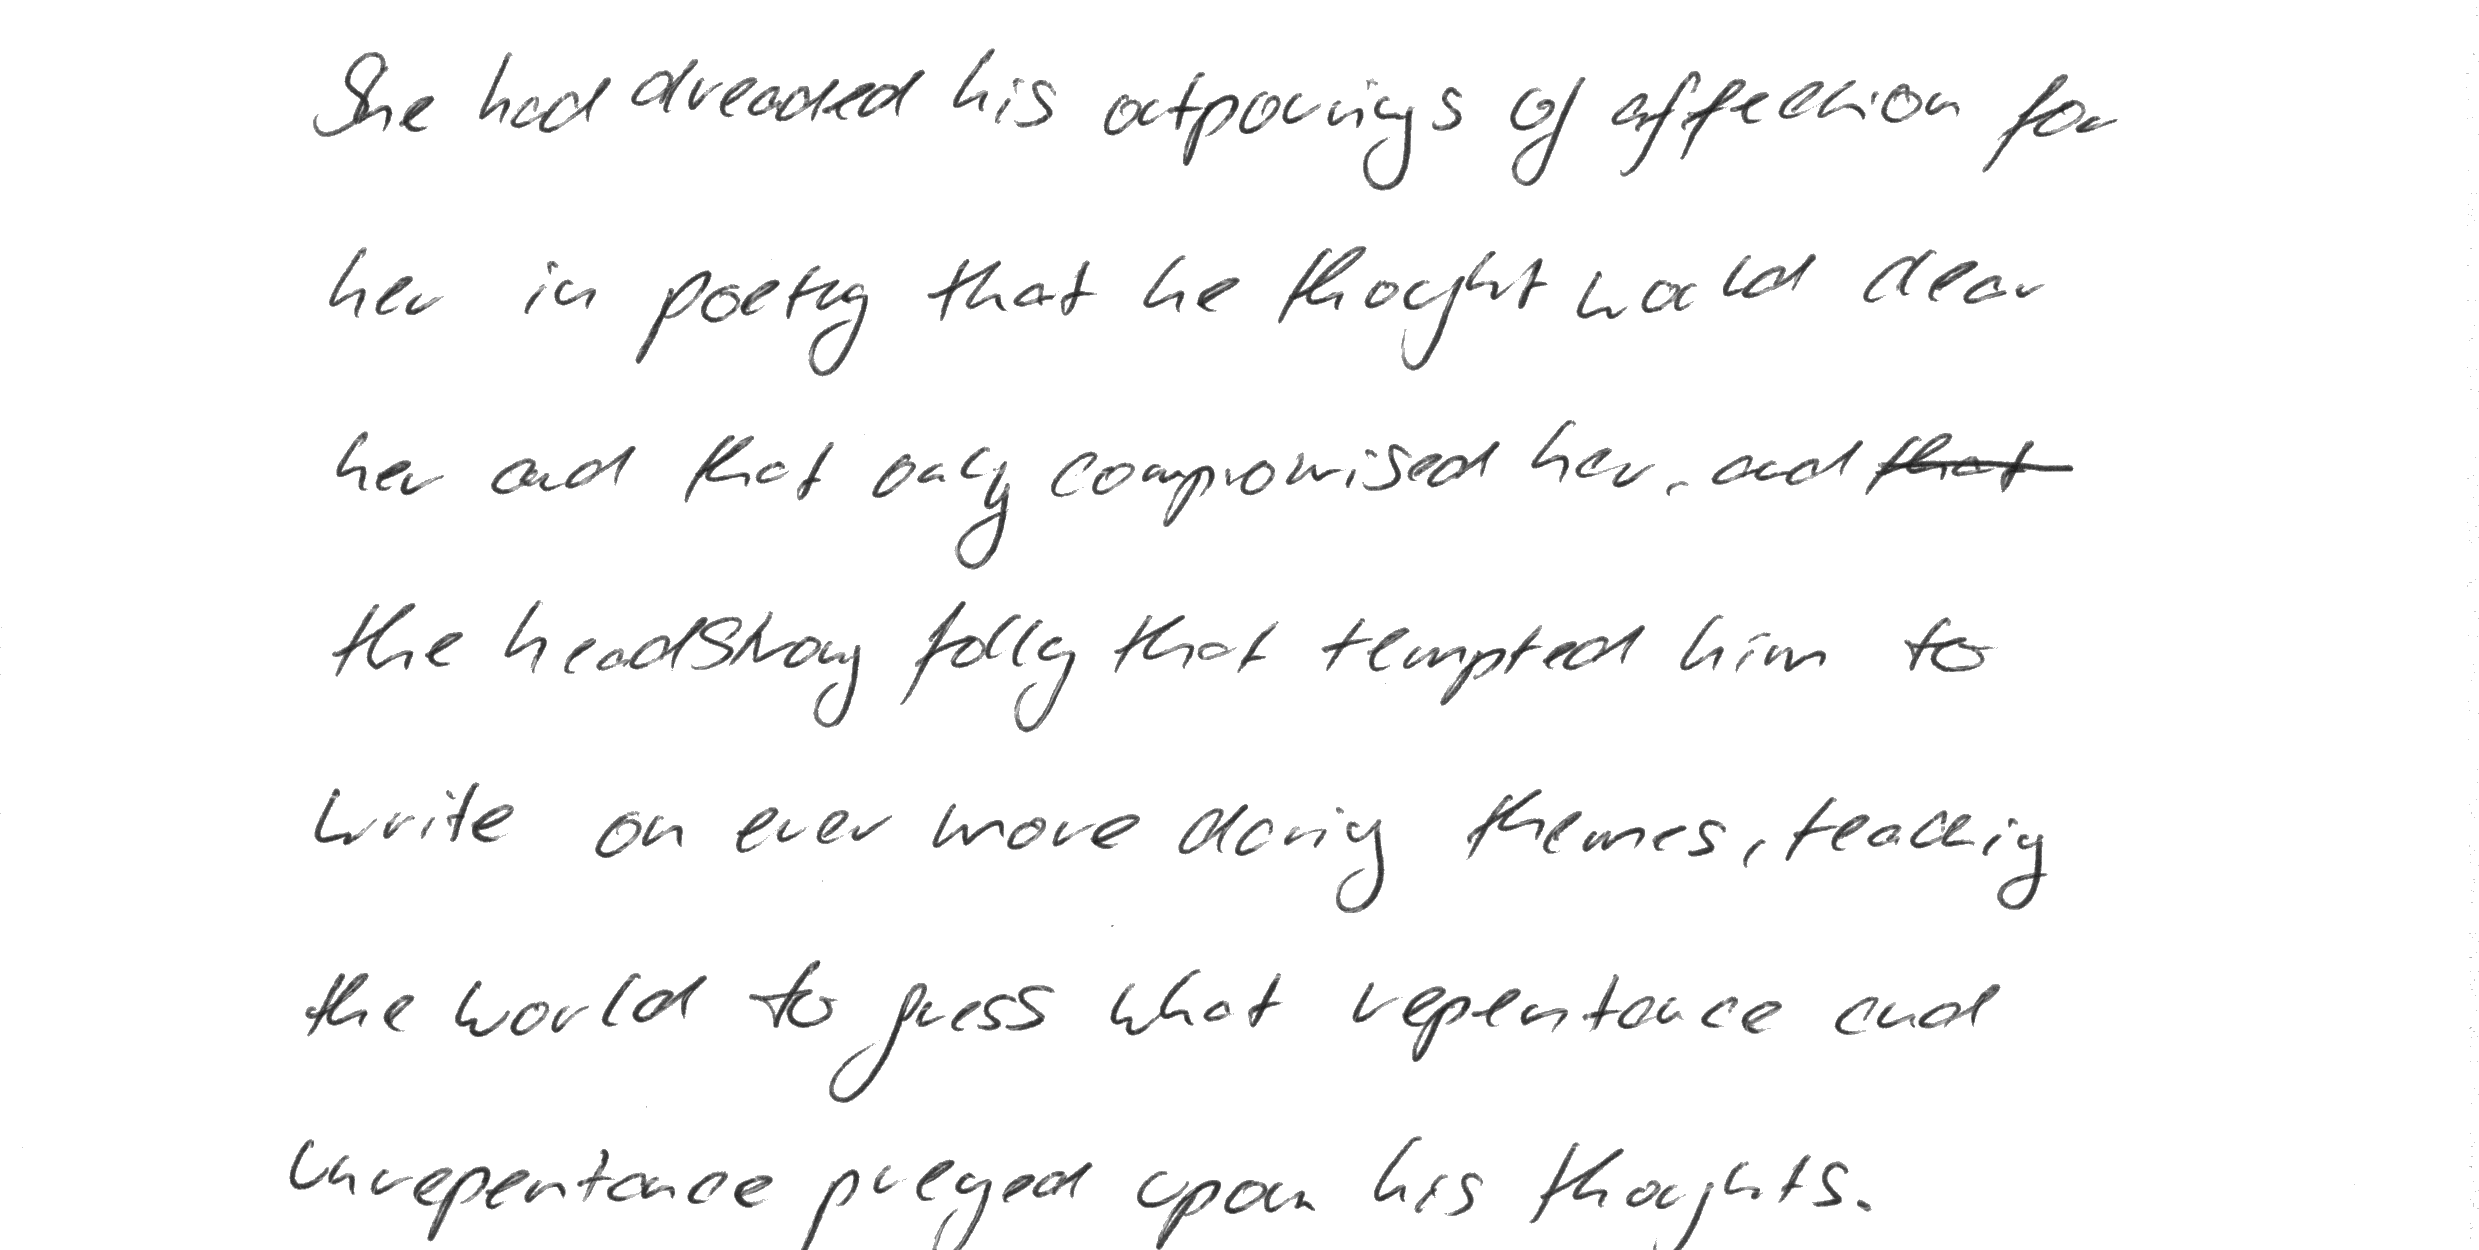 She had dreaded his outpourings of affection for
her in poetry that he thought would clear
her and that only compromised her, and ~~that~~
the headstrong folly that tempted him to
write on ever more daring themes, teaching
the world to guess what repentance and
unrepentance preyed upon his thoughts.